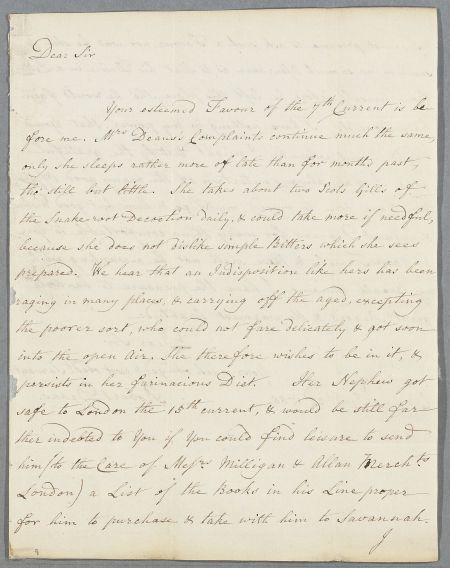 Dear Sir
Your esteemed Favour of the 7th Current is be
fore me. Mrs Deans's Complaints continue much the same,
only she sleeps rather more of late than for months past,
tho still but little. She takes about two Scots Gills of
the Snake-root Decoction daily, & could take more if needful,
because she does not dislike simple Bitters which she sees
prepared. We hear that an Indisposition like hers has been
raging in many places, & carrying off the aged, excepting
the poorer sort, who could not fare delicately & got soon
into the open Air, She therefore wishes to be in it, &
persists in her farinacious Diet. Her Nephew got
safe to London the 15th current, & would be still far=
ther indebted to You if You could find leisure to send
him (to the Care of Messrs Milligan & Allan Merchts
London) a List of the Books in his Line proper
for him to purchase & take with him to Savannah.
I